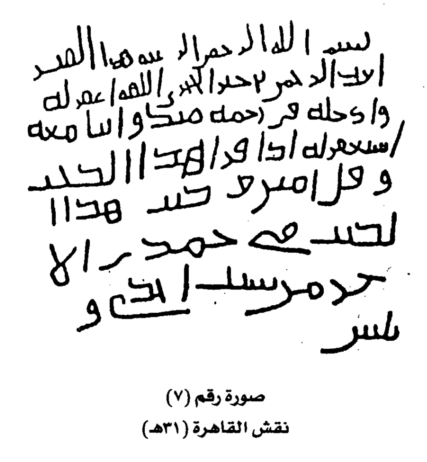 بسم الله الرحمن الرحيم هذا القبر
لعبد الرحمن بن خير الحجري اللهم اغفر له
وادخله في رحمة منك واتنا معه
استغفر له اذا قرا هذا الكتب
وقل امين وكتب هذا ا
لكتب في جمدى الا
خر من سنت احدى و
ثلثين
صورة رقم (٧)
نقش القاهرة (٣١هـ)